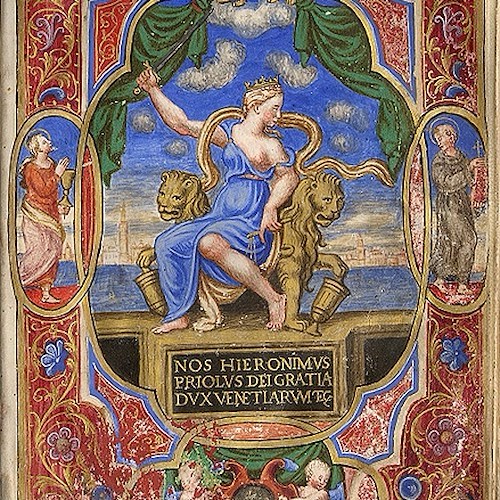 NOS HIERONIMVS
PRIOLVS DEI GRATIA
DVX VENETIARVM ET C